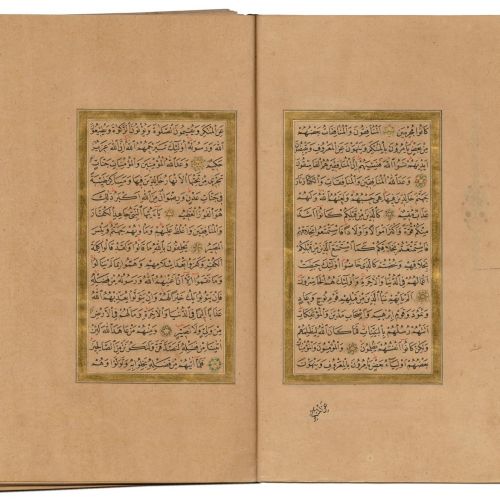 كَانُوا مُجْرِمِينَ الْمُنَافِقُونَ وَالْمُنَافِقَاتُ بَعْضُهُمْ
مِنْ بَعْضٍ يَأْمُرُونَ بِالْمُنْكَرِ وَيَنْهَوْنَ عَنِ الْمَعْرُوفِ وَيَقْبِضُونَ
اَيْدِيَهُمْ نَسُوا اللهَ فَنَسِيَهُمْ اِنَّ الْمُنَافِقِينَ هُمُ الْفَاسِقُونَ
وَعَدَ اللهُ الْمُنَافِقِينَ وَالْمُنَافِقَاتِ وَالْكُفَّارَ نَارَ
جَهَنَّمَ خَالِدِينَ فِيهَا هِيَ حَسْبُهُمْ وَلَعَنَهُمُ اللهُ وَلَهُمْ
عَذَابٌ مُقِيمٌ كَالَّذِينَ مِنْ قَبْلِكُمْ كَانُوا اَشَدَّ
مِنْكُمْ قُوَّةً وَاَكْثَرَ اَمْوَالًا وَاَوْلَادًا فَاسْتَمْتَعُوا بِخَلَاقِهِمْ
فَاسْتَمْتَعْتُمْ بِخَلَاقِكُمْ كَمَا اسْتَمْتَعَ الَّذِينَ مِنْ قَبْلِكُمْ
بِخَلَاقِهِمْ وَخُضْتُمْ كَالَّذِي خَاضُوا اُولٰئِكَ حَبِطَتْ
اَعْمَالُهُمْ فِي الدُّنْيَا وَالْاٰخِرَةِ وَاُولٰئِكَ هُمُ الْخَاسِرُونَ
اَلَمْ يَأْتِهِمْ نَبَأُ الَّذِينَ مِنْ قَبْلِهِمْ قَوْمِ نُوحٍ وَعَادٍ
وَثَمُودَ وَقَوْمِ اِبْرٰهِيمَ وَاَصْحَابِ مَدْيَنَ وَالْمُؤْتَفِكَاتِ
اَتَتْهُمْ رُسُلُهُمْ بِالْبَيِّنَاتِ فَمَا كَانَ اللهُ لِيَظْلِمَهُمْ
وَلٰكِنْ كَانُوا اَنْفُسَهُمْ يَظْلِمُونَ وَالْمُؤْمِنُونَ وَالْمُؤْمِنَاتُ
بَعْضُهُمْ اَوْلِيَاءُ بَعْضٍ يَأْمُرُونَ بِالْمَعْرُوفِ وَيَنْهَوْنَ
عن المنكر
عَنِ الْمُنْكَرِ وَيُقِيمُونَ الصَّلٰوةَ وَيُؤْتُونَ الزَّكٰوةَ وَيُطِيعُونَ
اللهَ وَرَسُولَهُ اُولٰئِكَ سَيَرْحَمُهُمُ اللهُ اِنَّ اللهَ عَزِيزٌ
حَكِيمٌ وَعَدَ اللهُ الْمُؤْمِنِينَ وَالْمُؤْمِنَاتِ جَنَّاتٍ
تَجْرِي مِنْ تَحْتِهَا الْاَنْهَارُ خَالِدِينَ فِيهَا وَمَسَاكِنَ طَيِّبَةً
فِي جَنَّاتِ عَدْنٍ وَرِضْوَانٌ مِنَ اللهِ اَكْبَرُ ذٰلِكَ
هُوَ الْفَوْزُ الْعَظِيمُ يَا اَيُّهَا النَّبِيُّ جَاهِدِ الْكُفَّارَ
وَالْمُنَافِقِينَ وَاغْلُظْ عَلَيْهِمْ وَمَأْوٰيهُمْ جَهَنَّمُ وَبِئْسَ
الْمَصِيرُ يَحْلِفُونَ بِاللهِ مَا قَالُوا وَلَقَدْ قَالُوا كَلِمَةَ
الْكُفْرِ وَكَفَرُوا بَعْدَ اِسْلَامِهِمْ وَهَمُّوا بِمَا لَمْ يَنَالُوا
وَمَا نَقَمُوا اِلَّا اَنْ اَغْنٰيهُمُ اللهُ وَرَسُولُهُ مِنْ فَضْلِهِ
فَاِنْ يَتُوبُوا يَكُ خَيْرًا لَهُمْ وَاِنْ يَتَوَلَّوْا يُعَذِّبْهُمُ اللهُ
عَذَابًا اَلِيمًا فِي الدُّنْيَا وَالْاٰخِرَةِ وَمَا لَهُمْ فِي الْاَرْضِ
مِنْ وَلِيٍّ وَلَا نَصِيرٍ وَمِنْهُمْ مَنْ عَاهَدَ اللهَ لَئِنْ
اٰتٰينَا مِنْ فَضْلِهِ لَنَصَّدَّقَنَّ وَلَنَكُونَنَّ مِنَ الصَّالِحِينَ
فَلَمَّا اٰتٰيهُمْ مِنْ فَضْلِهِ بَخِلُوا بِهِ وَتَوَلَّوْا وَهُمْ